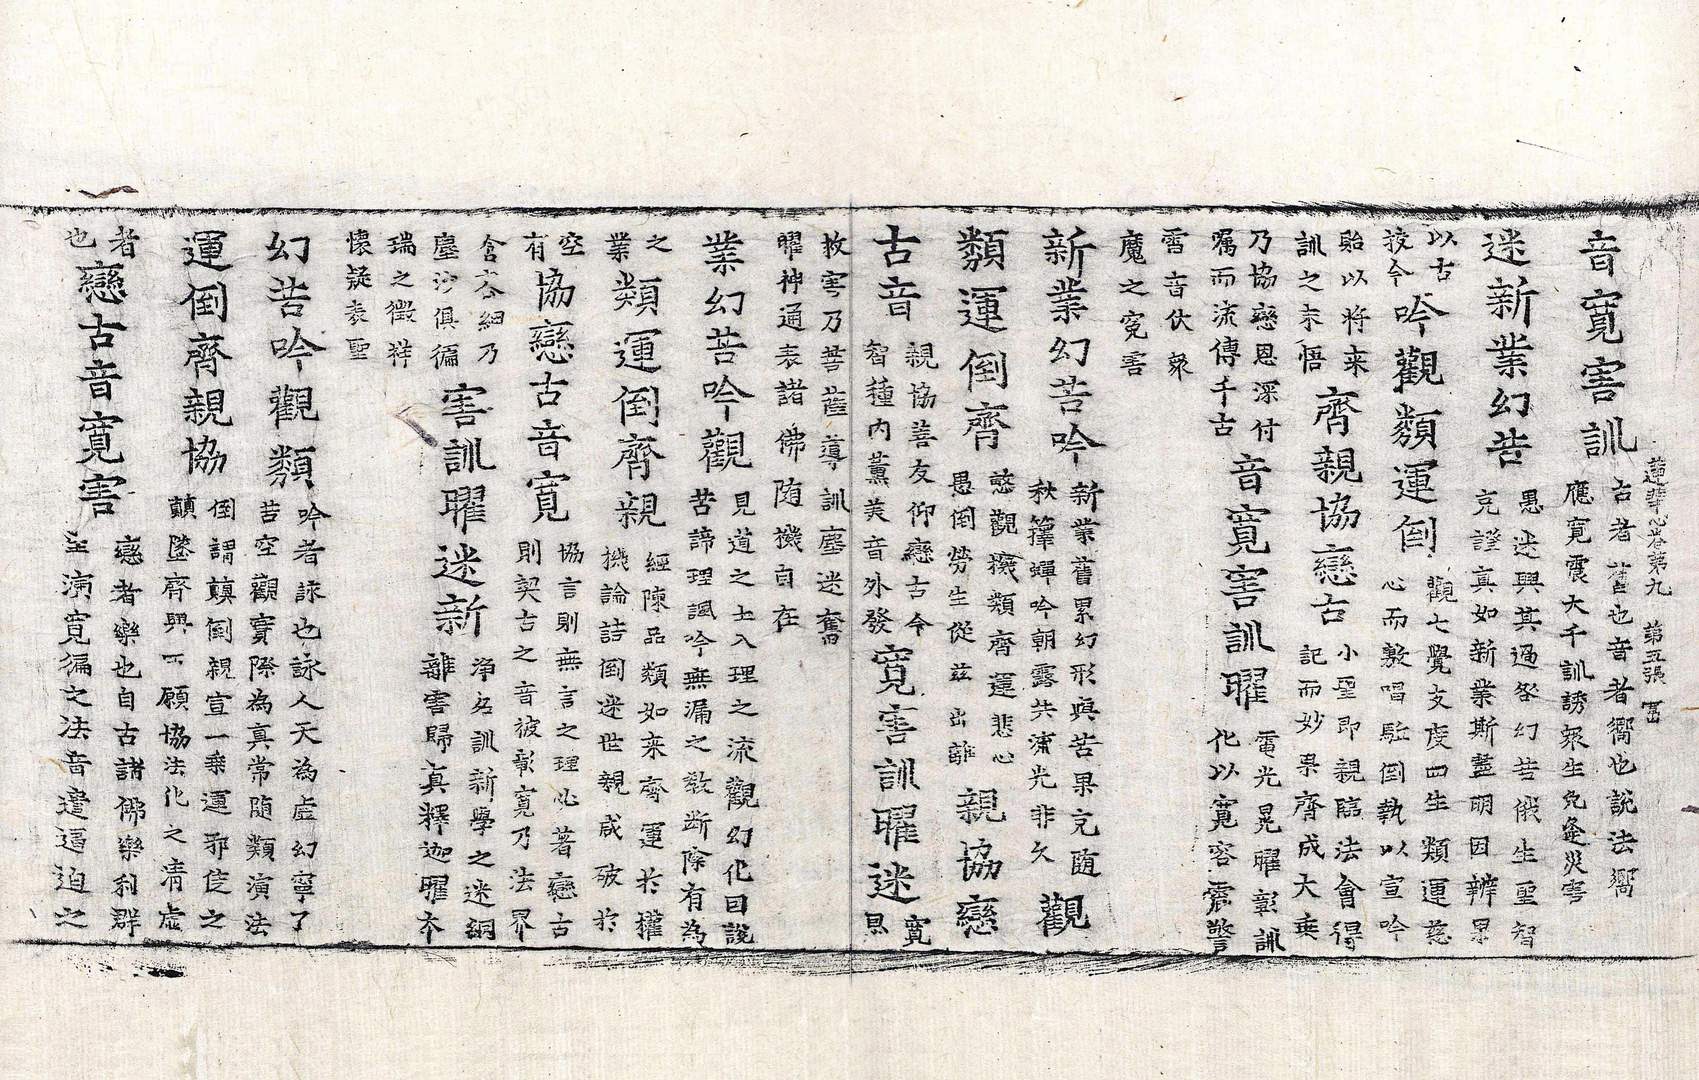 蓮華心卷第九 第五張 冨
音寬害訓
古者舊也音者嚮也說法嚮
應寬震大千訓誘衆生免逢災害
迷新業幻苦
愚迷興其過咎幻苦俄生聖智
克證真如新業斯盡明因辨果
以古
挍今
吟觀類運倒
觀七覺支度四生類運慈
心而敷唱駈倒執以宣吟
貽以将来
訓之未悟
齊親協戀古
小聖即親臨法會得
記而妙果齊成大乗
乃協戀恩深付
嘱而流傳千古
音寬害訓曜
電光晃曜彰訓
化以寬容震警
雷音伏衆
魔之寃害
新業幻苦吟
新業舊累幻形與苦果克随
秋籜蟬吟朝露共流光非久
觀
類運倒齊
愍觀癡類齊運悲心
愚倒勞生從茲出離
親協戀
古音
親協善友仰戀古今
智種內薰美音外發
寬害訓曜迷
寬
息
救害乃菩薩導訓塵迷奮
曜神通表諸佛随機自在
業幻苦吟觀
見道之士入理之流觀幻化曰說
苦諦理諷吟無漏之教断除有為
之
業
類運倒齊親
經陳品類如来齊運於權
機論詰倒迷世親咸破於
空
有
協戀古音寬
協言則無言之理必著戀古
則契古之音彼彰寬乃法界
含容細乃
塵沙俱徧
害訓曜迷新
淨名訓新學之迷綱
離害歸真釋迦曜夲
瑞之徵祥
懷疑表聖
幻苦吟觀類
吟者詠也詠人天為虛幻寧了
苦空觀實際為真常随類演法
運倒齊親協
倒謂顛倒親宣一乘運邪侫之
顛墜齊興一願協法化之清虛
者
也
戀古音寬害
戀者樂也自古諸佛樂利群
生演寬徧之法音遣逼迫之